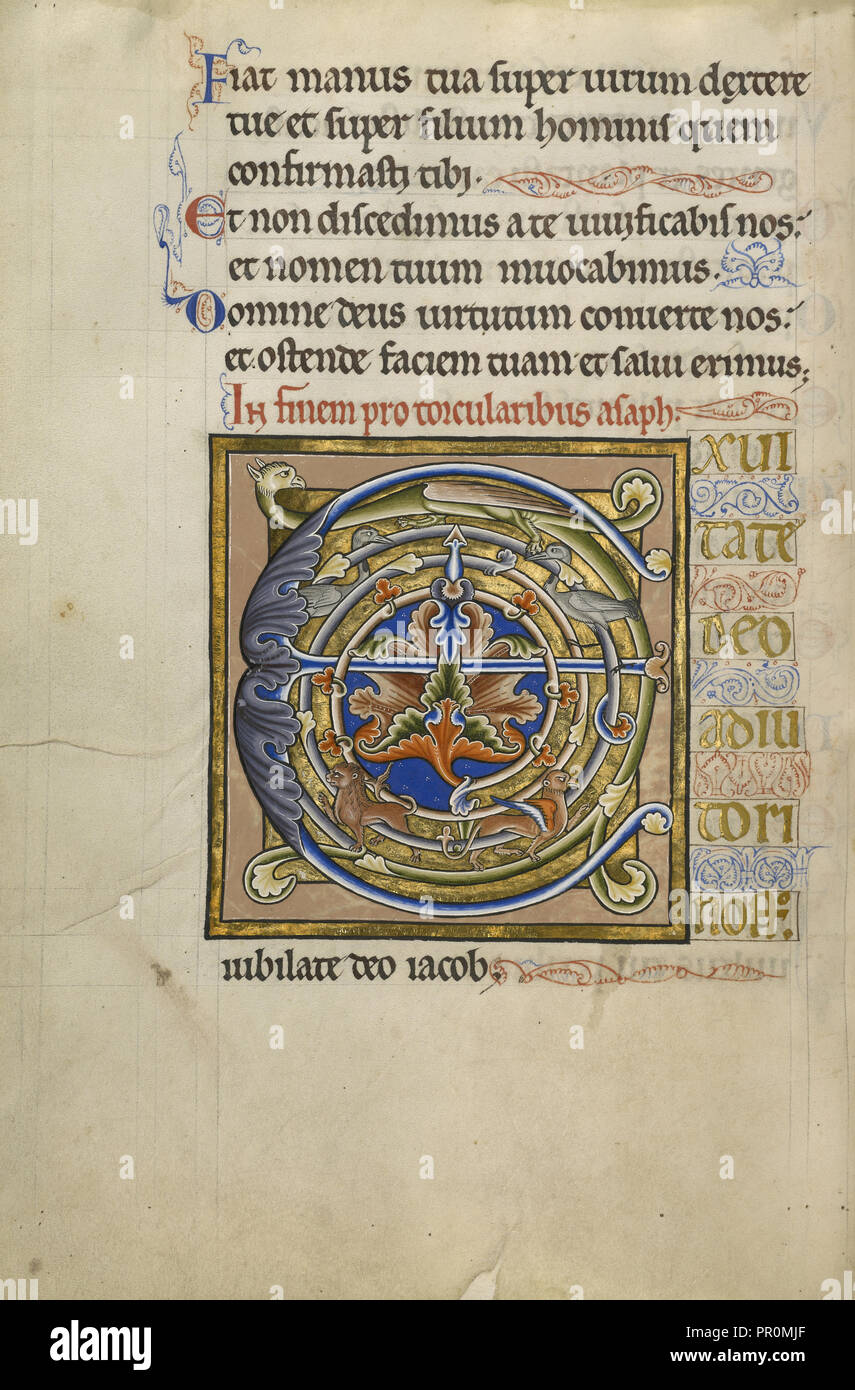 Fiat manus tua super uirum dextere
tue et super filium hominis quem
confirmasti tibi.
Et non discedimus a te uiuificabis nos:
et nomen tuum inuocabimus.
Domine deus uirtutum conuerte nos:
et ostende faciem tuam et salui erimus;
In finem pro torcularibus asaph.
E
XUL
TATE
DEO
ADIU
TORI
NOSTRO:
iubilate deo iacob.
alamy
Image ID: PR0MJF
www.alamy.com